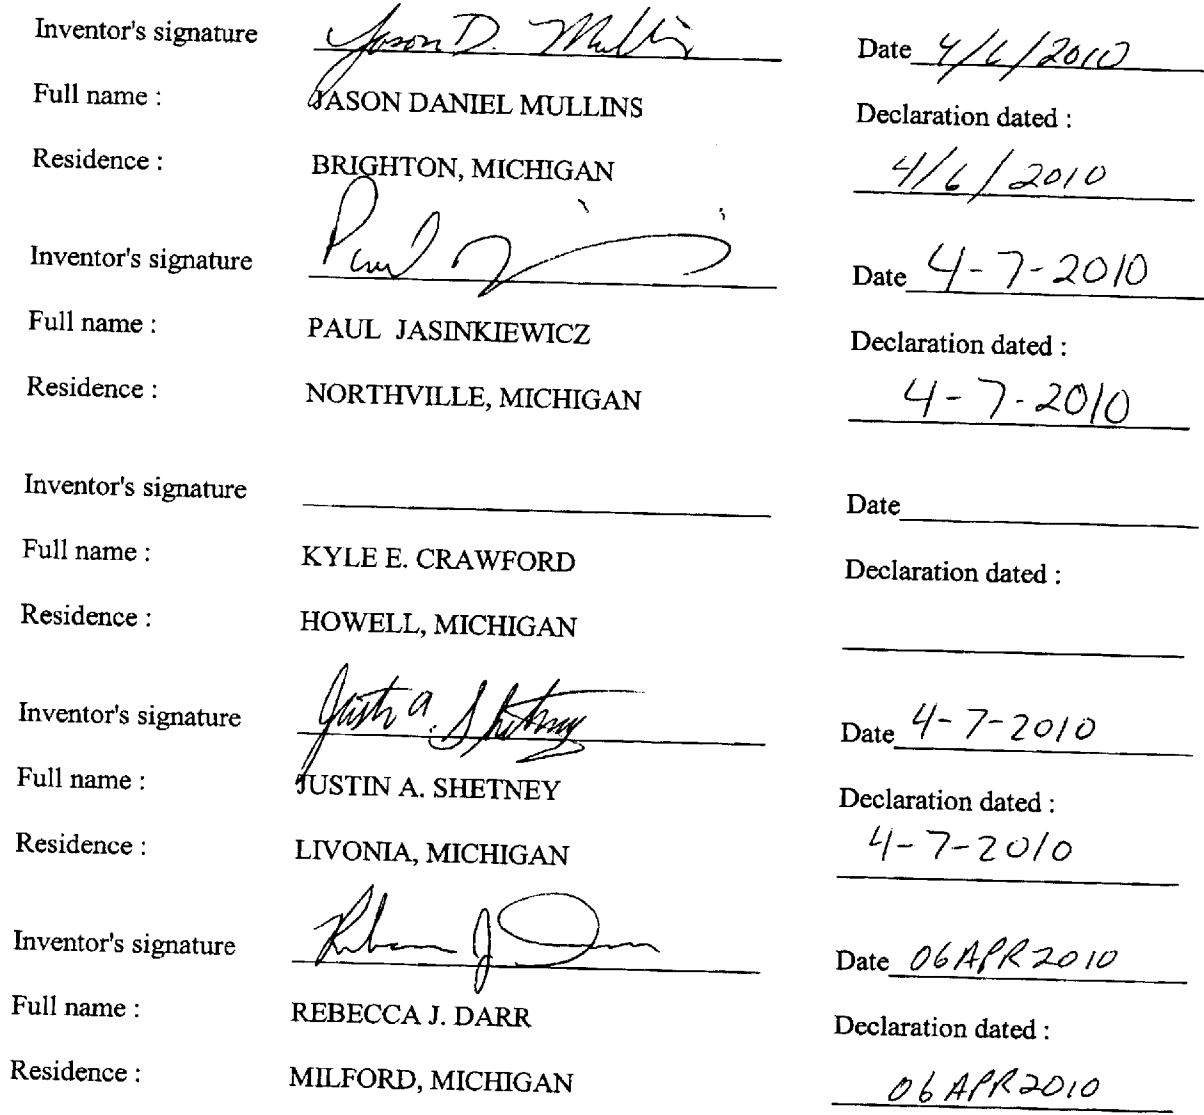 Inventor's signature Jason D. Mullins Date 4/6/2010
Full name : JASON DANIEL MULLINS Declaration dated :
Residence : BRIGHTON, MICHIGAN 4/6/2010
Inventor's signature Paul Date 4-7-2010
Full name : PAUL JASINKIEWICZ Declaration dated :
Residence : NORTHVILLE, MICHIGAN 4-7-2010
Inventor's signature Date
Full name : KYLE E. CRAWFORD Declaration dated :
Residence : HOWELL, MICHIGAN
Inventor's signature Justin A. Shetney Date 4-7-2010
Full name : JUSTIN A. SHETNEY Declaration dated :
Residence : LIVONIA, MICHIGAN 4-7-2010
Inventor's signature Rebecca J. Date 06 APR 2010
Full name : REBECCA J. DARR Declaration dated :
Residence : MILFORD, MICHIGAN 06 APR 2010